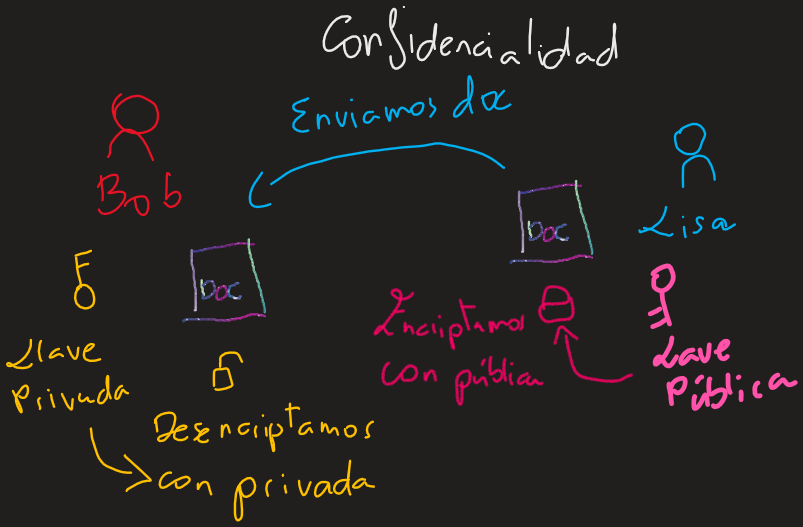 Confidencialidad
Enviamos doc
Bob
Lisa
DOC
DOC
Llave
Privada
Desenciptamos
con privada
Enciptamos
con pública
Lave
Pública